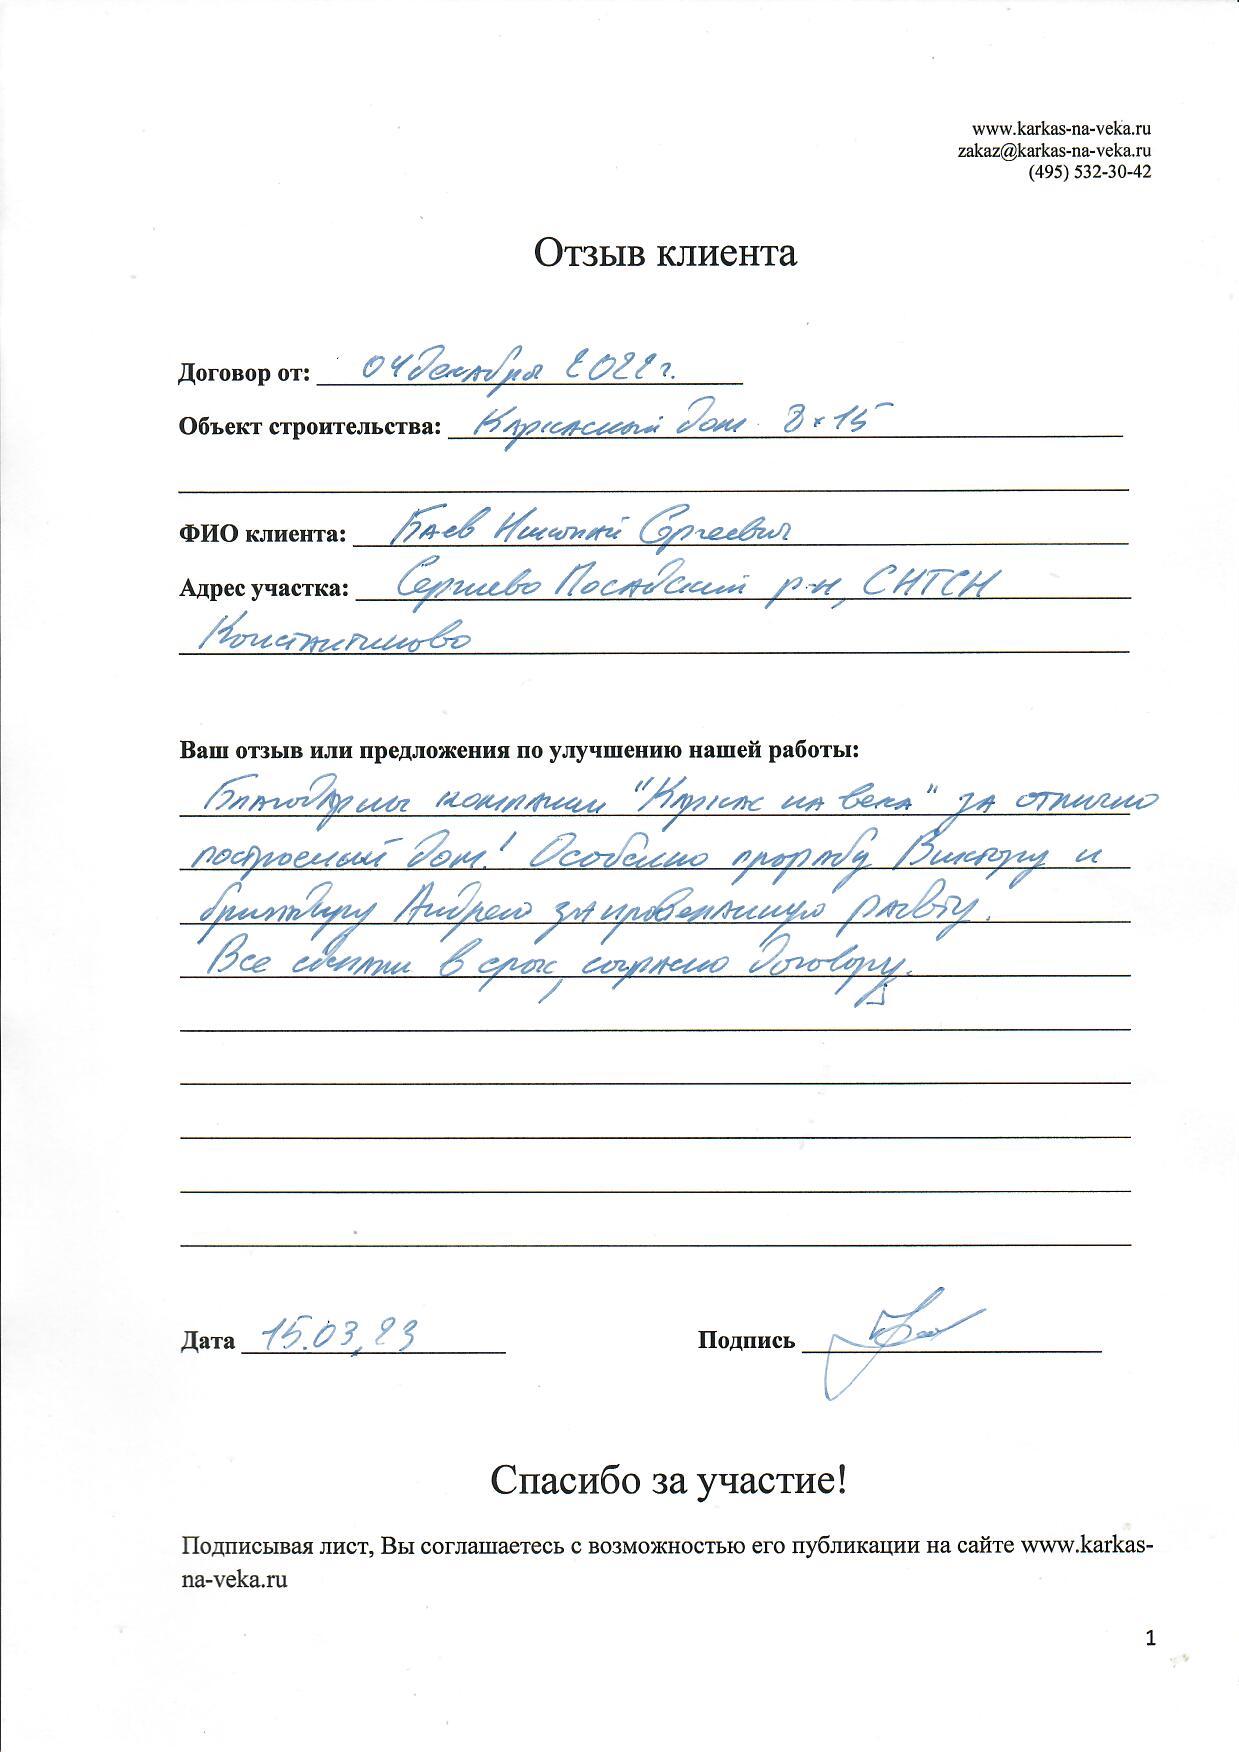 www.karkas-na-veka.ru
zakaz@karkas-na-veka.ru
(495) 532-30-42
Отзыв клиента
Договор от: 04 декабря 2022 г.
Объект строительства: Каркасный дом 8×15
ФИО клиента: Баев Николай Сергеевич
Адрес участка: Сергиево Посадский р-н, СНТСН
Константиново
Ваш отзыв или предложения по улучшению нашей работы:
Благодарны компании "Каркас на века" за отлично
построенный дом! Особенно прорабу Виктору и
бригадиру Андрею за проделанную работу.
Все сделали в срок, согласно договору.
Дата 15.03.23
Подпись
Спасибо за участие!
Подписывая лист, Вы соглашаетесь с возможностью его публикации на сайте www.karkas-
na-veka.ru
1